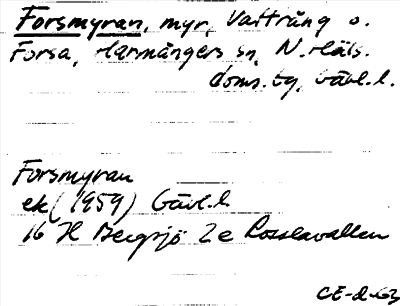 Forsmyran, myr, Vattrång o.
Forsa, Harmångers sn, N. Häls.
doms. tg, Gävl. l.
Forsmyran
ek (1959) Gävl. l
16 H Bergsjö 2 e Rosslavallen
CE-d-63